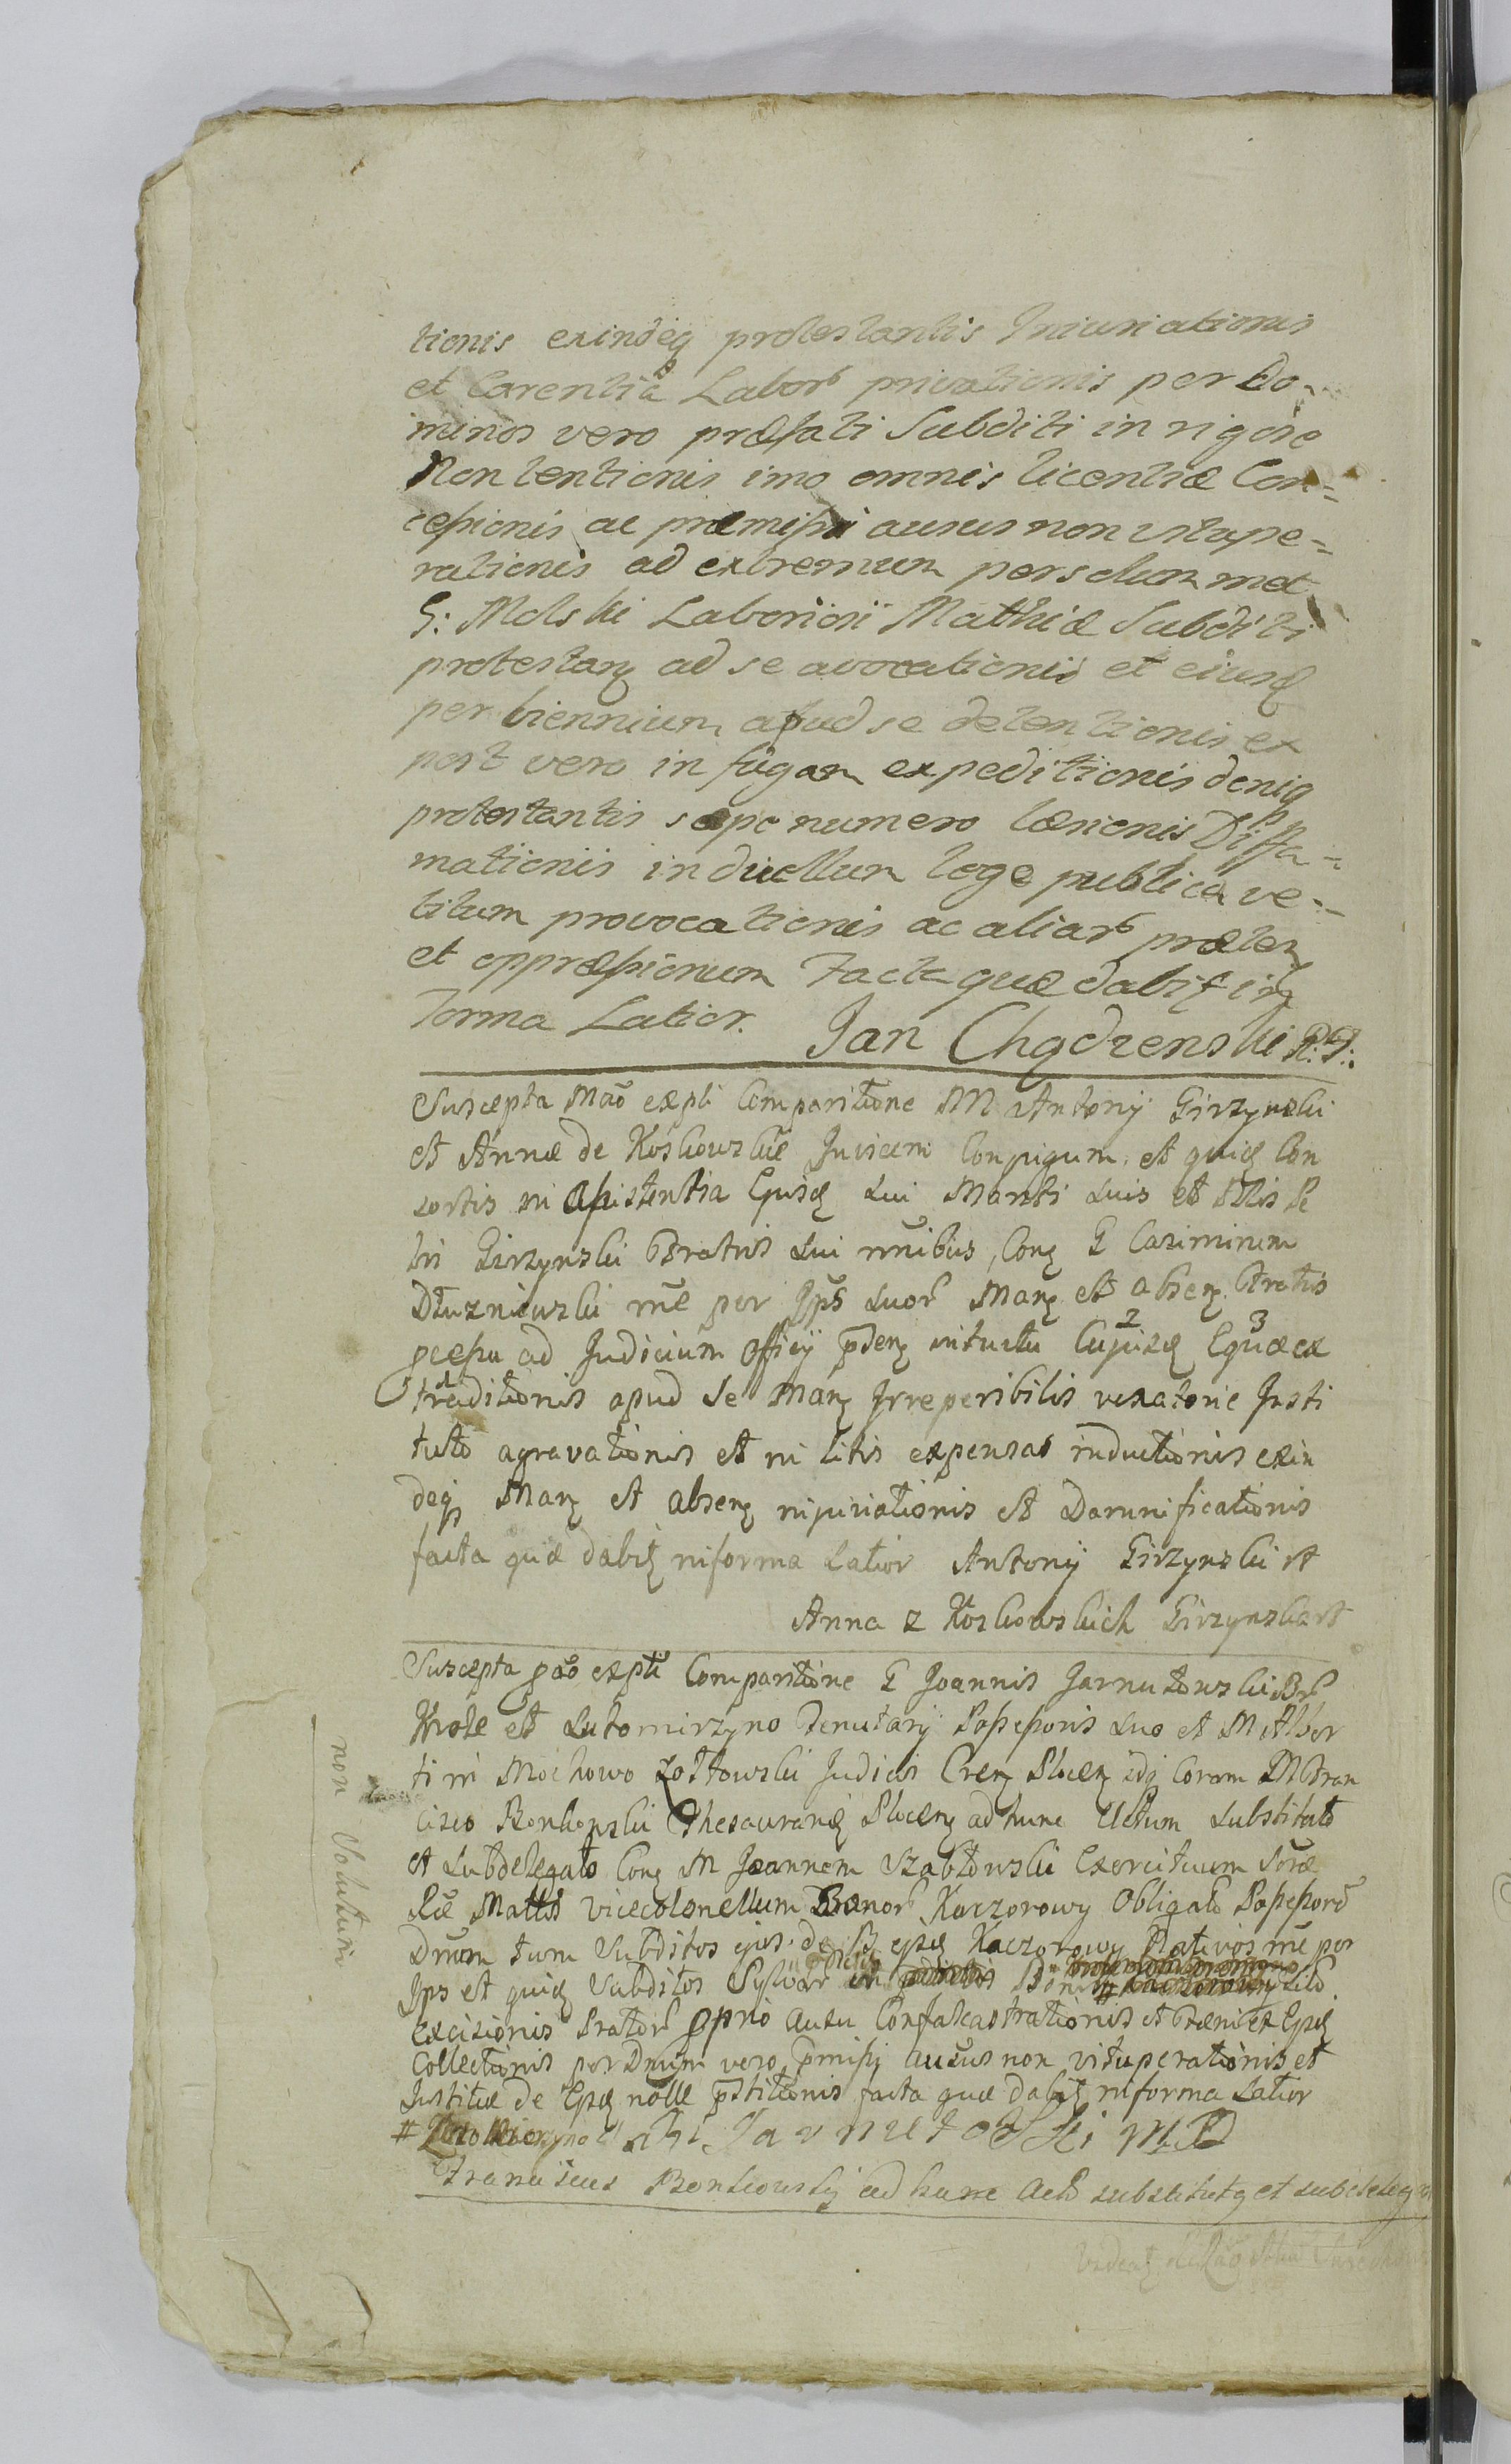 tionis exindeq protestantis Iniuriationis
et Carentia Labor privationis per Do-
minos vero præfati Subditi in rigore
Non tentionis imo omnis licentiæ Con=
cessionis ac præmissi ausus non vitupe=
rationis ad extremum per solum met
G: Molski Laboriosi Mathiæ Subditi
protestan ad se avocationis et eiusd
per biennium apud se detentionis ex
post vero in fugam expeditionis deniq
protestantis sæpe numero læsionis Diffa=
mationis in duellum lege publica ve-
titum provocationis ac aliar præten
et oppræssionum Facta quæ dabit in
forma Latior. Jan Chądzenski
Suscepta Mão expti Comparitione M Antonij Girzynski
et Annæ de Koskowskie Invicem Conjugum et quid Con
sortis in assistentia Ejusd sui Mariti suis et
Girzynski Fratris sui nnibus, Con G Casimirum
Dłuzniewski me per Ips suor Man et absen Fratis
pcessu ad Judicium Officij pden intuitu Cujusd Equæ ex
2 3
traditionis apud se Man Irreperibilis vexatorie Insti
tuto agravationis et in litis expensas inductionis exin
deq Man et absen injuriationis et Damnificationis
facta quæ dabit in forma Latior Antonij Girzynski et
Anna z Koskowskich Girzynska
Suscepta pão expti Comparitione G Joannis Jarnutowski
Krole et Lutomirzyno Tenutarij Possessoris suo et M Alber
ti in Mochowo Zołtowski Judicis Cren Plocen Coram M Fran
cisco Bonkowski Thesaurarid Plocen ad hunc Actum Substituto
et Subdelegato Con M Joannem Szabłowski Exercituum
Vicecolonellum Bonor Kaczorowy Obligato Possessore
Dnum tum Subditos ejus de B episd Kaczorowy Nativos me per
Ips et quid Subditos Sylvar in Bonis
Excisionis Prator pprio ausu Confalcastrationis et Fæni ex Epsd
Collectionis per Dnum vero pmissi ausus non vituperationis et
Justitiæ de Epsd nolle pstitionis facta quæ dabit in forma Latior
# Jarnutowski
Franciscus Bonkowskj ad hunc Actu substitutq et subdeleg
non Solutum